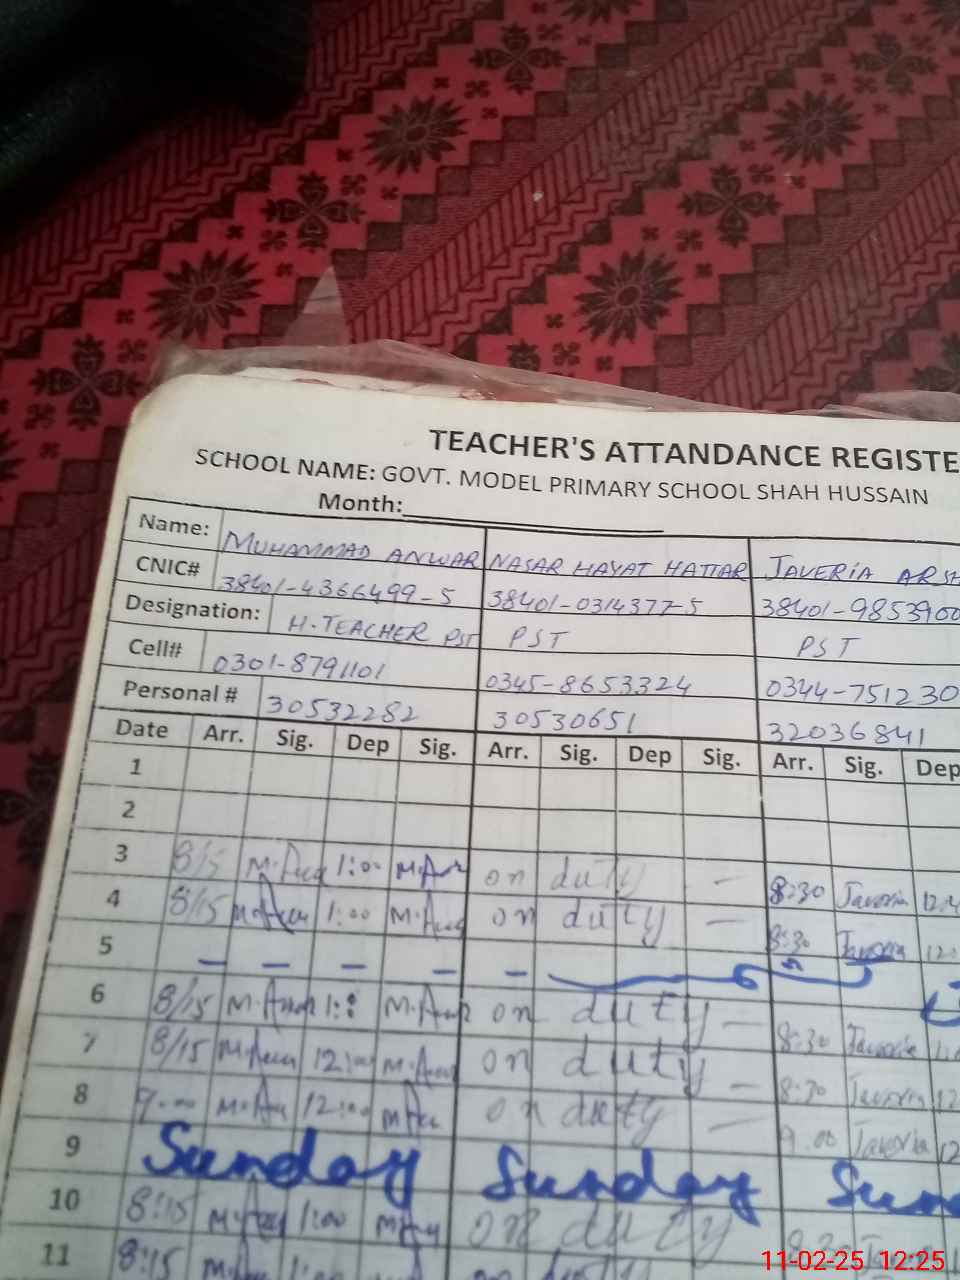 TEACHER'S ATTANDANCE REGISTE
SCHOOL NAME: GOVT. MODEL PRIMARY SCHOOL SHAH HUSSAIN
Month:
Name: MUHAMMAD ANWAR NASAR HAYAT HATTAR JAVERIA ARSH
CNIC# 38401-4366499-5 38401-0314377-5 38401-9853900
Designation: H.TEACHER PST PST PST
Cell# 0301-8791101 0345-8653324 0344-751230
Personal # 30532282 30530651 32036841
Date Arr. Sig. Dep Sig. Arr. Sig. Dep Sig. Arr. Sig. Dep
1
2
3 8/5 1:00 on duty — 8:30 Javeria
4 8/15 1:00 on duty — 8:30 Javeria
5 — — — — —
6 8/15 on duty — 8:30 Javeria
7 8/15 12:00 on duty — 8:30 Javeria
8 9:00 12:00 on duty — 9:00 Javeria 12
9 Sunday Sunday Sun
10 8:15 1:00 on duty 8:30 Javeria
11 8:15 1:00
11-02-25 12:25